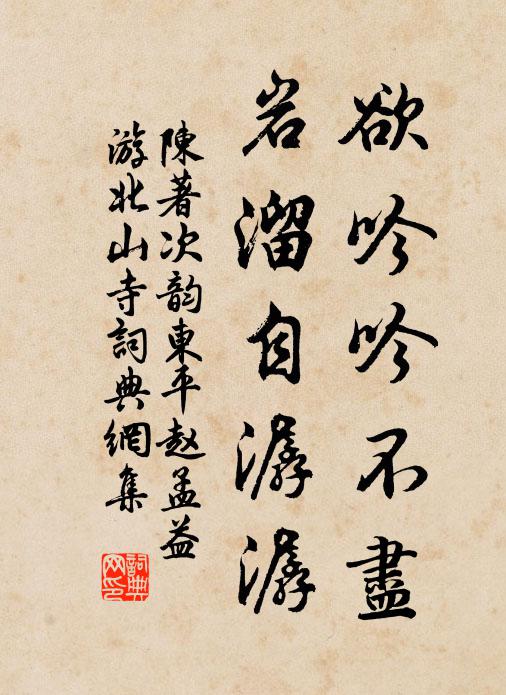 欲吟吟不盡
岩溜自潺潺
陳著次韵東平赵孟益
游北山寺詞典網集
詞典
网印